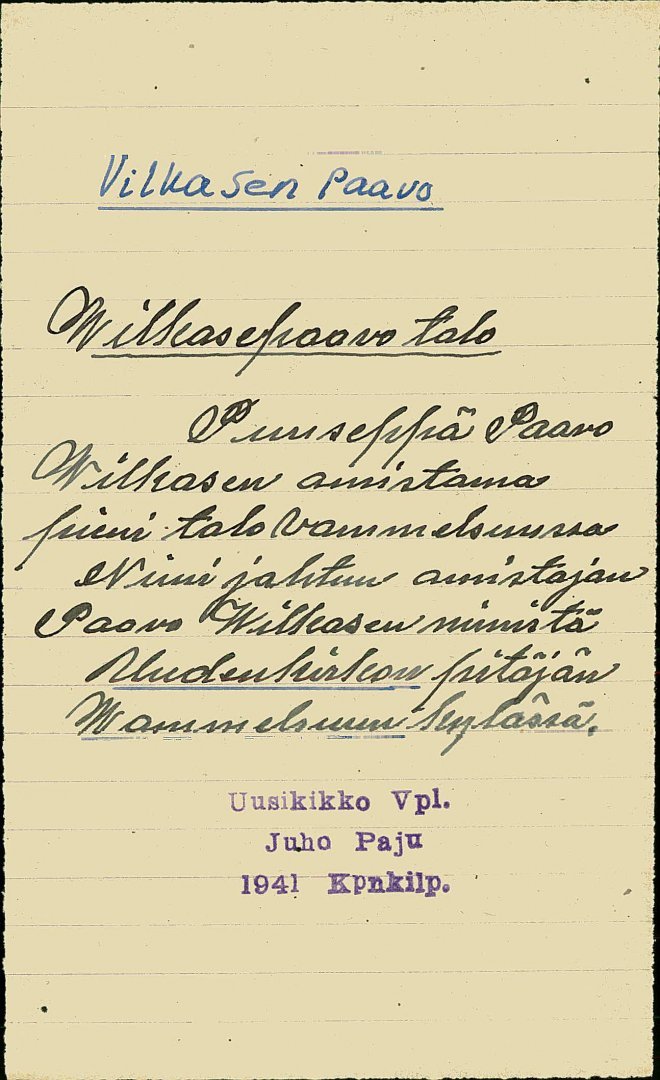 Vilkasen Paavo
Wilkasepaavo talo
Puuseppä Paavo
Wilkasen omistama
pieni talo Vammelsuussa
Nimi johtuu omistajan
Paavo Wilkasen nimistä
Uudenkirkon pitäjän
Wammelsuun kylässä.
Uusikikko Vpl.
Juho Paju
1941 Kpnkilp.